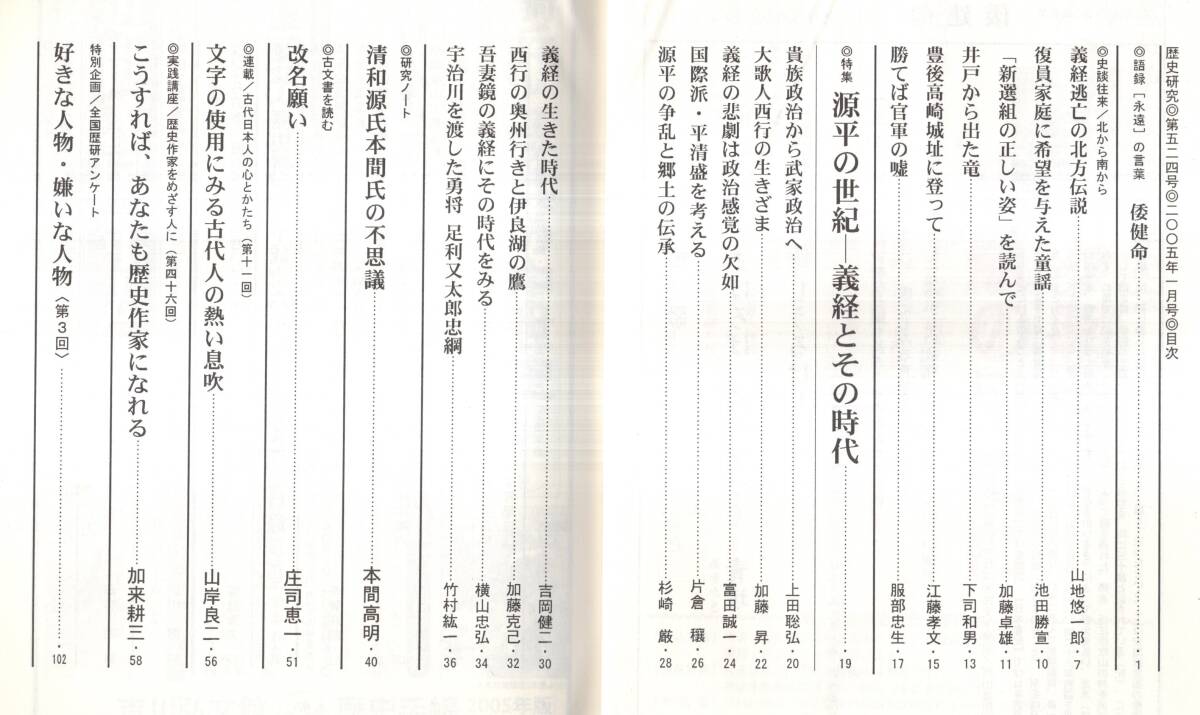 歴史研究◎第五二四号◎二〇〇五年一月号◎目次
◎語録［永遠］の言葉　倭健命……1
◎史談往来／北から南から
義経逃亡の北方伝説……山地悠一郎・7
復員家庭に希望を与えた童謡……池田勝宣・10
「新選組の正しい姿」を読んで……加藤卓雄・11
井戸から出た竜……下司和男・13
豊後高崎城址に登って……江藤孝文・15
勝てば官軍の嘘……服部忠生・17
◎特集　源平の世紀―義経とその時代……19
貴族政治から武家政治へ……上田聡弘・20
大歌人西行の生きざま……加藤　昇・22
義経の悲劇は政治感覚の欠如……富田誠一・24
国際派・平清盛を考える……片倉　穣・26
源平の争乱と郷土の伝承……杉崎　厳・28
義経の生きた時代……吉岡健二・30
西行の奥州行きと伊良湖の鷹……加藤克己・32
吾妻鏡の義経にその時代をみる……横山忠弘・34
宇治川を渡した勇将 足利又太郎忠綱……竹村紘一・36
◎研究ノート
清和源氏本間氏の不思議……本間高明・40
◎古文書を読む
改名願い……庄司恵一・51
◎連載／古代日本人の心とかたち（第十一回）
文字の使用にみる古代人の熱い息吹……山岸良二・56
◎実践講座／歴史作家をめざす人に（第四十六回）
こうすれば、あなたも歴史作家になれる……加来耕三・58
特別企画／全国歴研アンケート
好きな人物・嫌いな人物〈第3回〉……・102